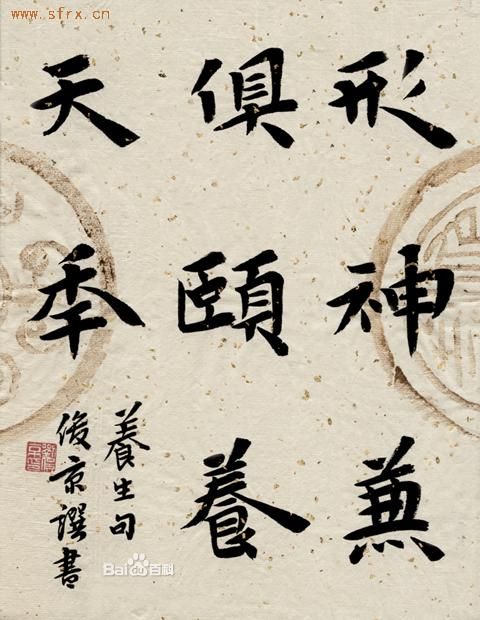 www.sfrx.cn
形神兼
俱頤養
天秊
養生句
俊京譔書
Bai百科